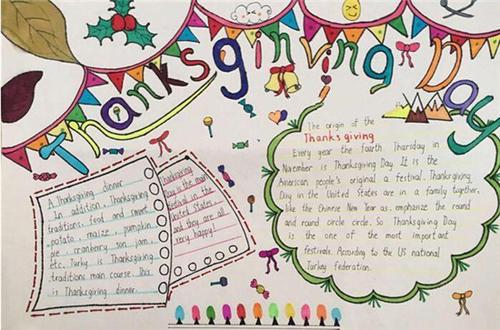 Thanksginving Day
The origin of the
Thanks giving
Every year the fourth Tharsday in
November is Thanksgiving Day. It is the
American people's original a festival. Thanksgiving
Day in the United States are in a family together,
like the Chinese New Year as. emphasize the round
and round circle circle. So Thanksgiving Day
is the one of the most important
festivals. According to the US national
Turkey federation.
A Thanksgiving dinner
In addition, Thanksgiving
traditions food and sweet
potato, maize, pumpkin
pie, cranberry son jam,
etc. Turkey is Thanksgiving
traditions main course. This
is Thanksgiving dinner.
Thanksgiving
Day is the main
festival in the
United States.
and they are all
very happy!